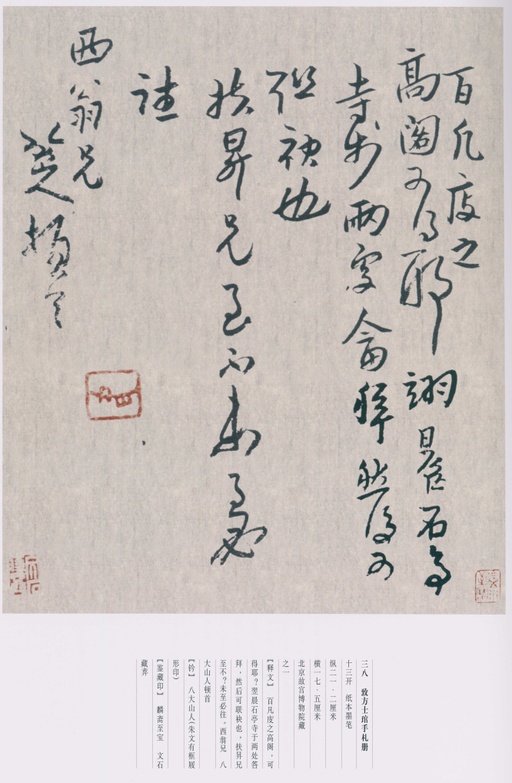 百凡庋之
高閣可得耶翌晨石亭
寺於兩處畣拜然後可
聯袂也
扶昇兄至不未至必
往
西翁兄
八大山人頓首
三八 致方士琯手札册
十三开 纸本墨笔
纵二一·二厘米
横一七·五厘米
北京故宫博物院藏
之一
【释文】 百凡庋之高阁，可
得耶？翌晨石亭寺于两处答
拜，然后可联袂也，扶昇兄
至不？未至必往。西翁兄 八
大山人顿首
【钤】 八大山人（朱文有框屐
形印）
【鉴藏印】 麟斋至宝 文石
藏弆